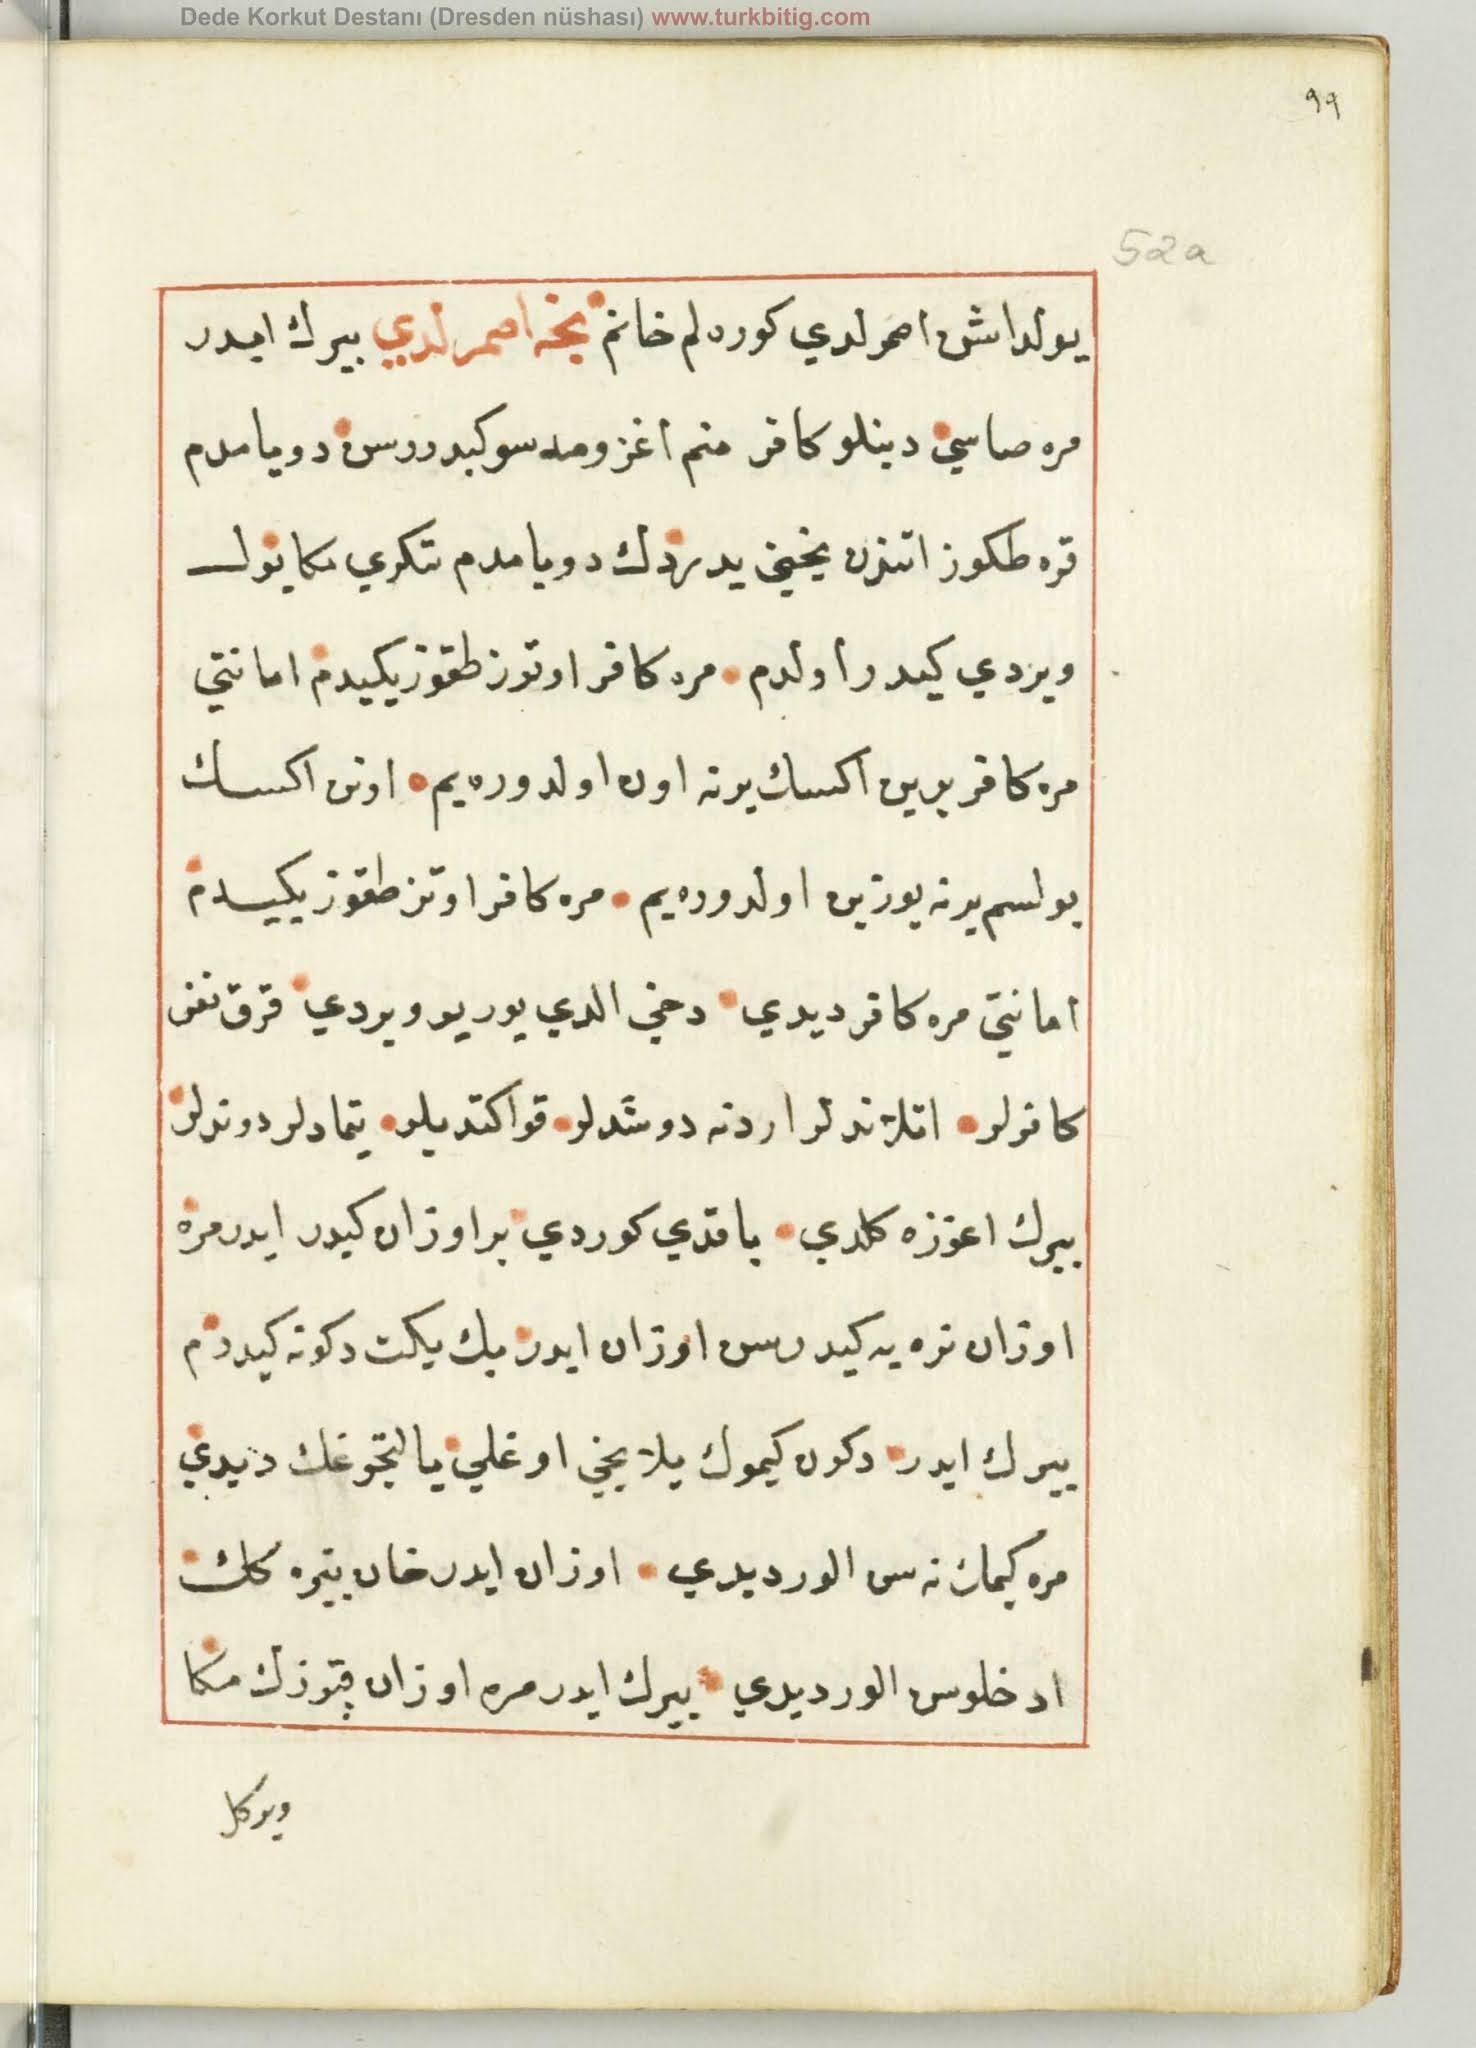 Dede Korkut Destanı (Dresden nüshası) www.turkbitig.com
۹۹
52a
يولداش اصمرلدي كوره لم خانم نجه اصمرلدي بيرك ايدر
مره صاسي دينلو كافر منم اغزومه سوكبدررسن دويامدم
قره طكوز اتندن يخني يدردك دويامدم تنكري مكا يول
ويردي كيدر اولدم مره كافر اوتوز طقوز يكيدم امانتي
مره كافر بيرين اكسك يرنه اون اولدوره يم اونن اكسك
بولسم يرنه يوزين اولدوره يم مره كافر اوتز طقوز يكيدم
امانتي مره كافر ديدي دخي الدي يوريو ويردي قرق نفر
كافرلر اتلاندلر اردنه دوشدلر قوا كتديلر يتمادلر دوندلر
بيرك اغوزه كلدي باقدي كوردي بر اوزان كيدر ايدر مره
اوزان نره يه كيدرسن اوزان ايدر بك يكت دكونه كيدرم
بيرك ايدر دكون كيموك يلايخي اوغلي يالتجوغك ديدي
مره كيمك نه سن الور ديدي اوزان ايدر خان بيره كك
ادخلوسن الور ديدي بيرك ايدر مره اوزان قپوزك مكا
ويركل